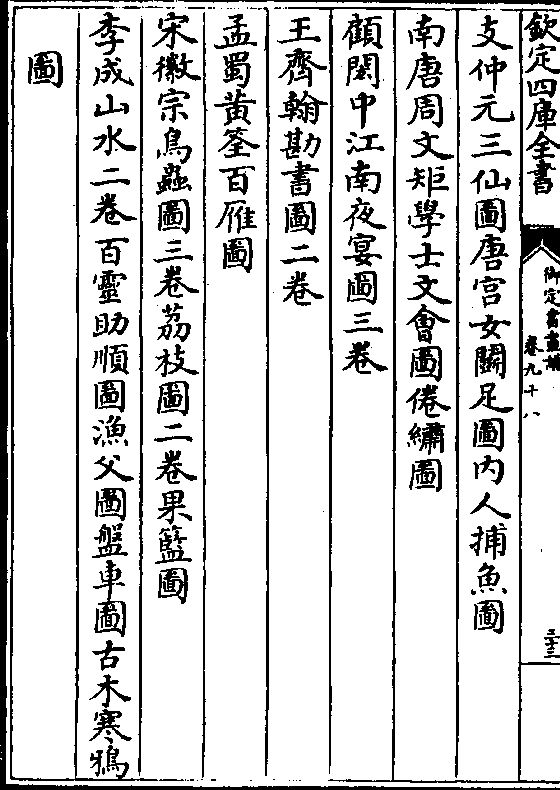 欽定四庫全書
御定書畫譜
卷九十八
三十三
支仲元三仙圖唐宫女關足圖内人捕魚圖
南唐周文矩學士文會圖倦繡圖
顧閎中江南夜宴圖三卷
王齊翰勘書圖二卷
孟蜀黄筌百雁圖
宋徽宗鳥蟲圖三卷荔枝圖二卷果籃圖
李成山水二卷百靈助順圖漁父圖盤車圖古木寒鴉
圖